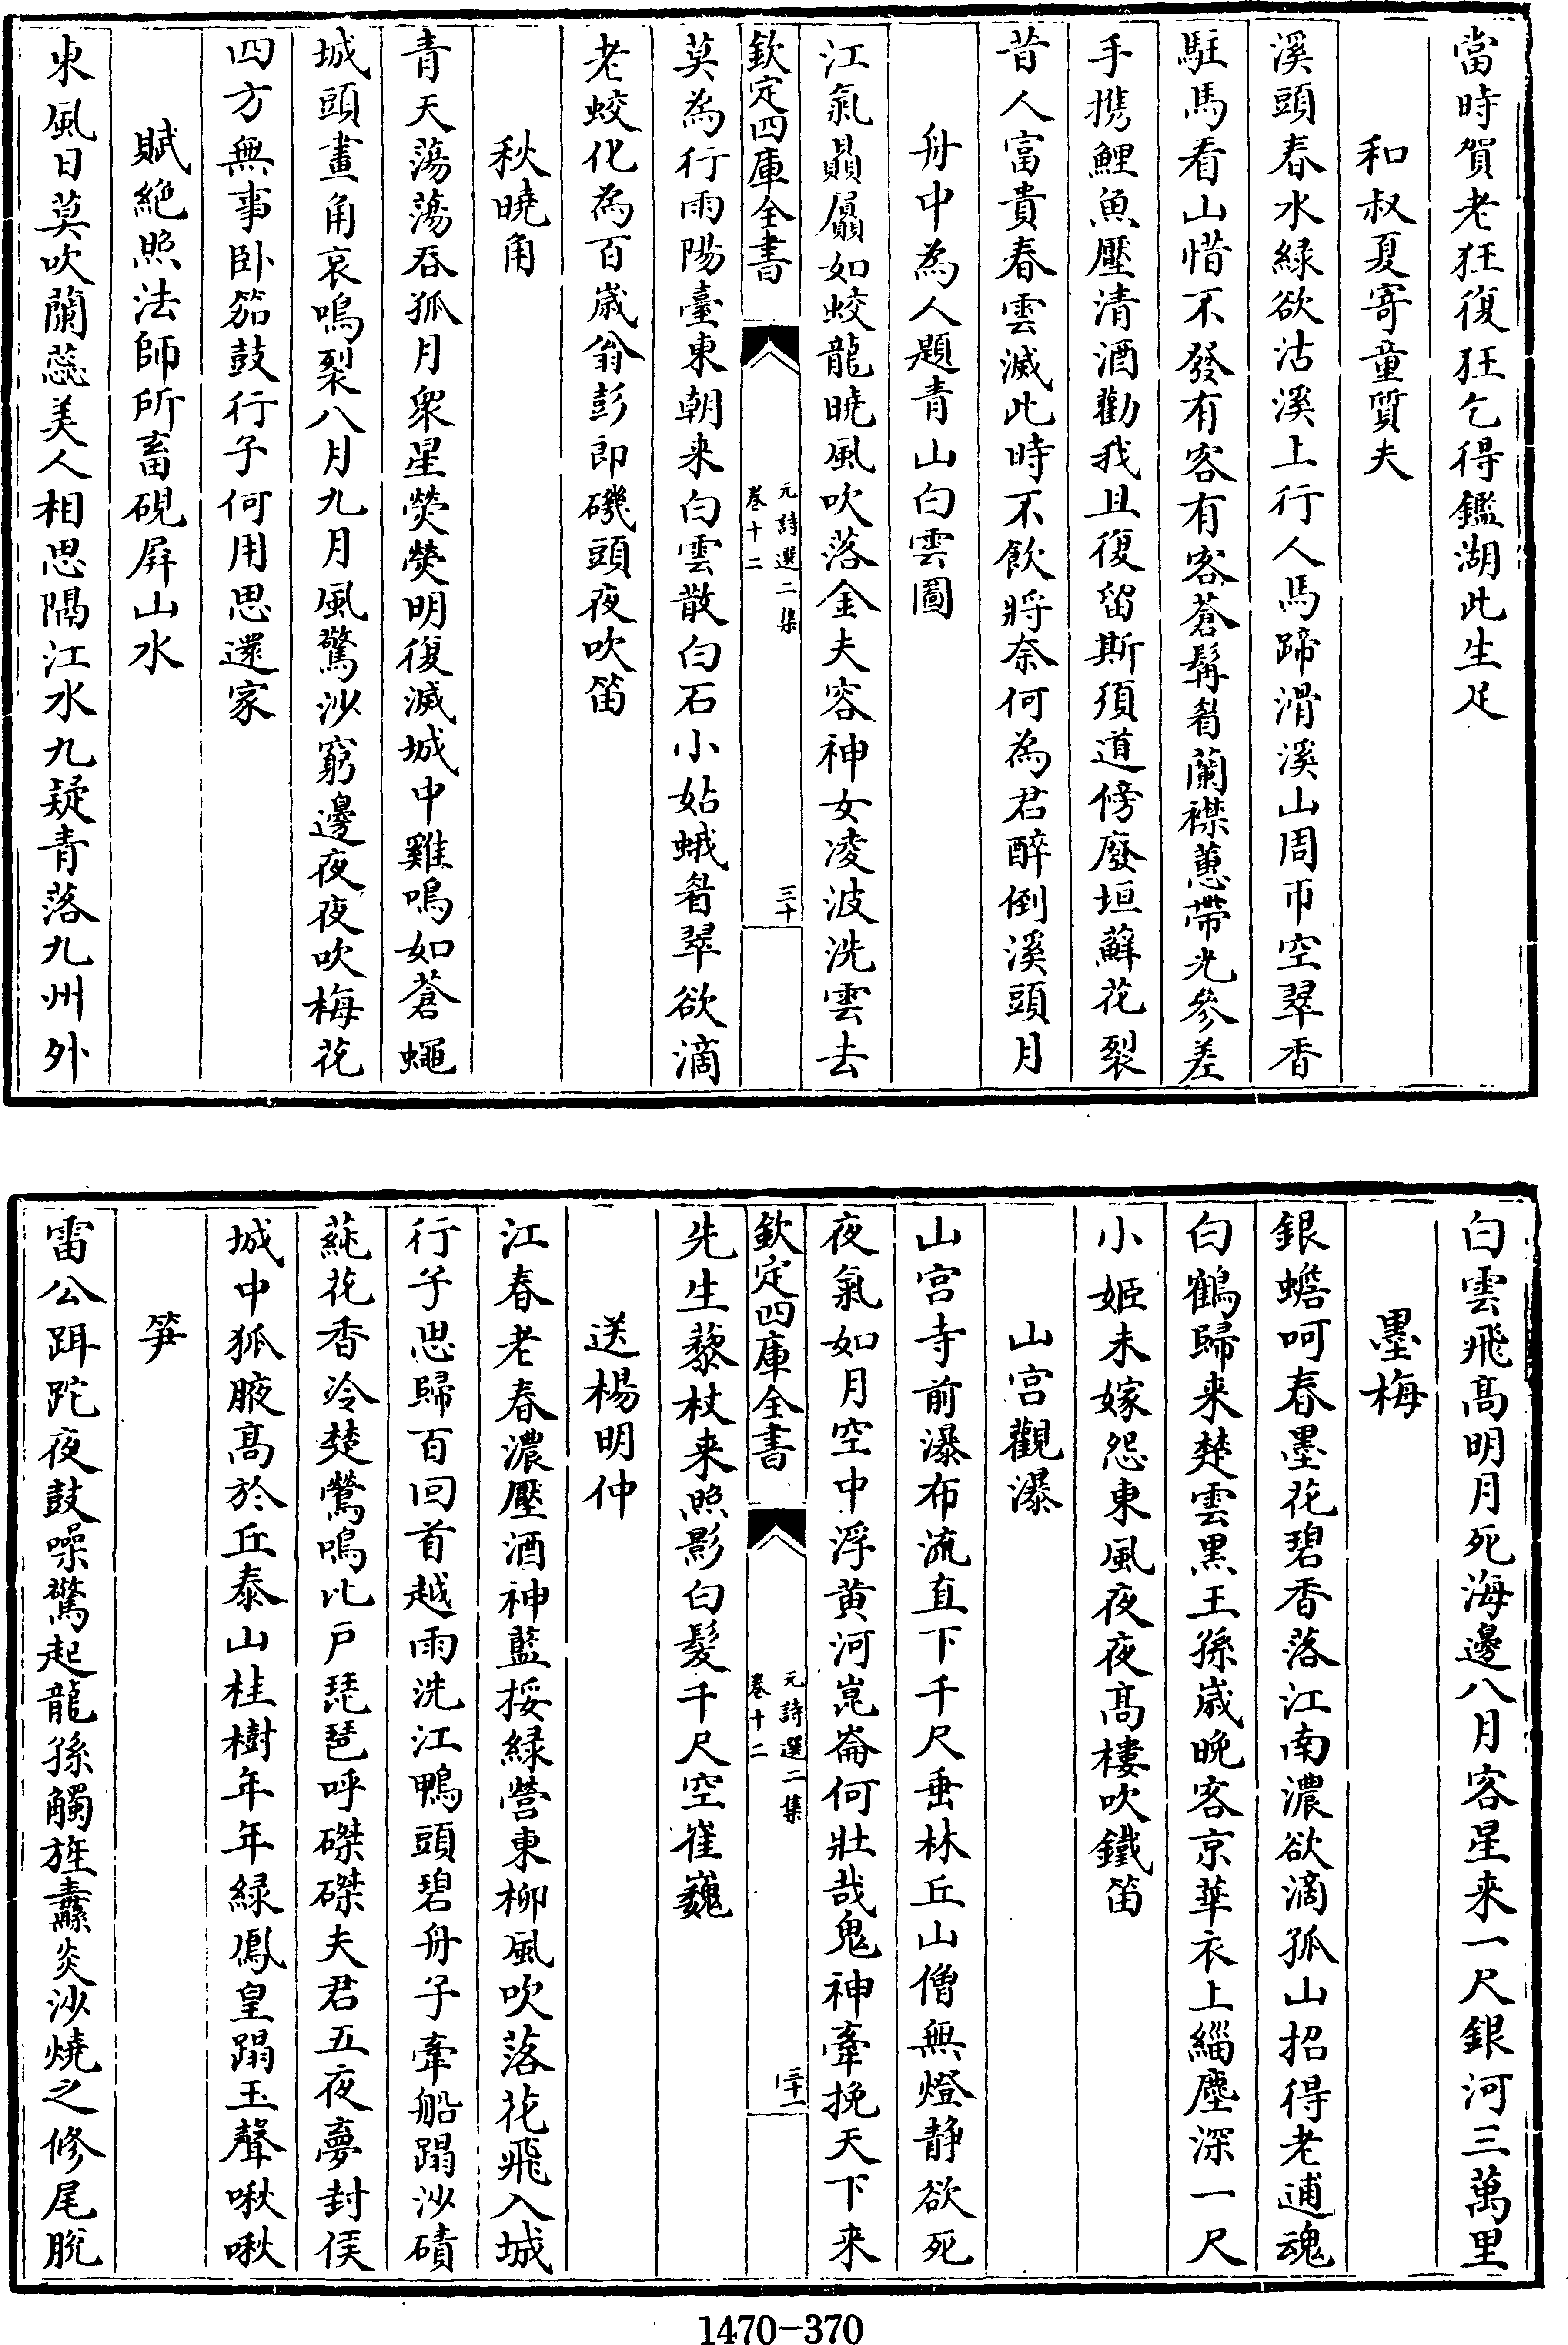 當時賀老狂復狂乞得鑑湖此生足
和叔夏寄童質夫
溪頭春水緑欲沽溪上行人馬蹄滑溪山周帀空翠香
駐馬看山惜不發有客有客蒼髯眉蘭襟蕙帶光參差
手携鯉魚壓清酒勸我且復留斯須道傍廢垣蘚花裂
昔人富貴春雲滅此時不飲將奈何為君醉倒溪頭月
舟中為人題青山白雲圖
江氣贔屭如蛟龍曉風吹落金夫容神女凌波洗雲去
欽定四庫全書
元詩選二集
卷十二
三十
莫為行雨陽臺東朝来白雲散白石小姑蛾眉翠欲滴
老蛟化為百歲翁彭郎磯頭夜吹笛
秋曉角
青天蕩蕩吞孤月衆星熒熒明復滅城中雞鳴如蒼蠅
城頭畫角哀嗚裂八月九月風驚沙窮邊夜夜吹梅花
四方無事卧笳鼓行子何用思還家
賦絶照法師所畜硯屏山水
東風日莫吹蘭蕊美人相思隔江水九疑青落九州外
白雲飛髙明月死海邊八月客星来一尺銀河三萬里
墨梅
銀蟾呵春墨花碧香落江南濃欲滴孤山招得老逋魂
白鶴歸来楚雲黒王孫歲晚客京華衣上緇塵深一尺
小姬未嫁怨東風夜夜髙樓吹鐵笛
山宫觀瀑
山宫寺前瀑布流直下千尺垂林丘山僧無燈静欲死
夜氣如月空中浮黄河崑崙何壯哉鬼神牽挽天下来
欽定四庫全書
元詩選二集
卷十二
三十一
先生藜杖来照影白髮千尺空崔巍
送楊明仲
江春老春濃壓酒神藍挼緑營東柳風吹落花飛入城
行子思歸百回首越雨洗江鴨頭碧舟子牽船蹋沙磧
蒓花香冷楚鶯鳴比户琵琶呼磔磔夫君五夜夢封侯
城中狐腋髙於丘泰山桂樹年年緑鳳皇蹋玉聲啾啾
笋
雷公跙跎夜鼓噪驚起龍孫觸旌纛炎沙燒之修尾脫
1470-370